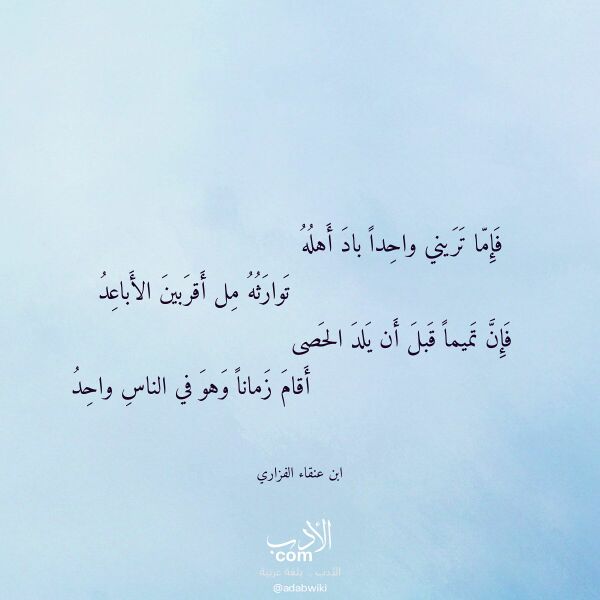 فَإِمّا تَرَيني واحِداً بادَ أَهلُهُ
تَوارَثُهُ مِل أَقرَبينَ الأَباعِدُ
فَإِنَّ تَميماً قَبلَ أَن يَلدَ الحَصى
أَقامَ زَماناً وَهوَ في الناسِ واحِدُ
ابن عنقاء الفزاري
الأدب
com
الأدب .. بلغة عربية
@adabwiki